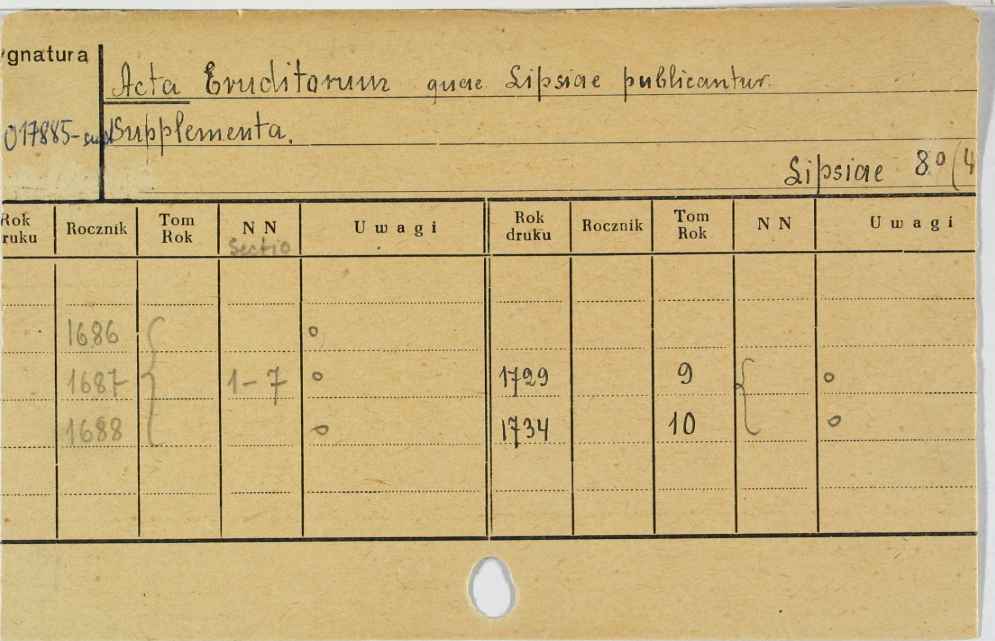 ygnatura
Acta Eruditorum quae Lipsiae publicantur.
017885-supl
Supplementa.
Lipsiae 8º (4
Rok ruku Rocznik Tom Rok N N Uwagi Rok druku Rocznik Tom Rok N N Uwagi
Sectio
1686 o
1687 1-7 o 1729 9 o
1688 o 1734 10 o